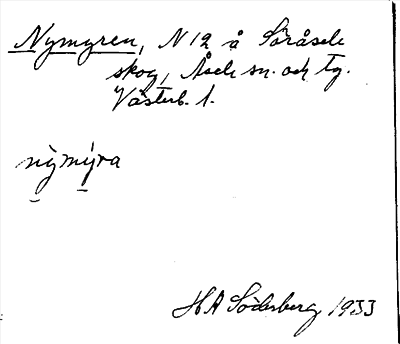 Nymyren, N 12 å Söråsele
skog, Åsele sn. och tg.
Västerb. l.
nỳmýra
H A Söderberg 1933